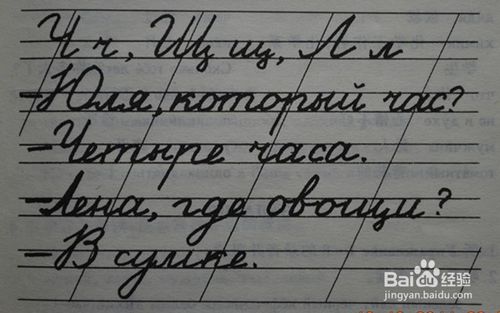 Ч ч, Щ щ, Л л
-Юля, который час?
-Четыре часа.
-Лена, где овощи?
-В сумке.
Bai du 经验
jingyan.baidu.com